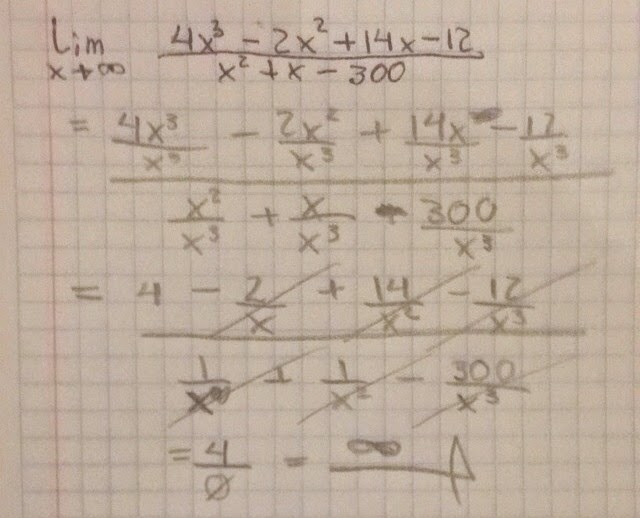 Lim 4x³ - 2x² + 14x - 12
x→∞ x² + x - 300
= 4x³/x³ - 2x²/x³ + 14x/x³ - 12/x³
x²/x³ + x/x³ - 300/x³
= 4 - 2/x + 14/x² - 12/x³
1/x + 1/x² - 300/x³
= 4/0 = ∞